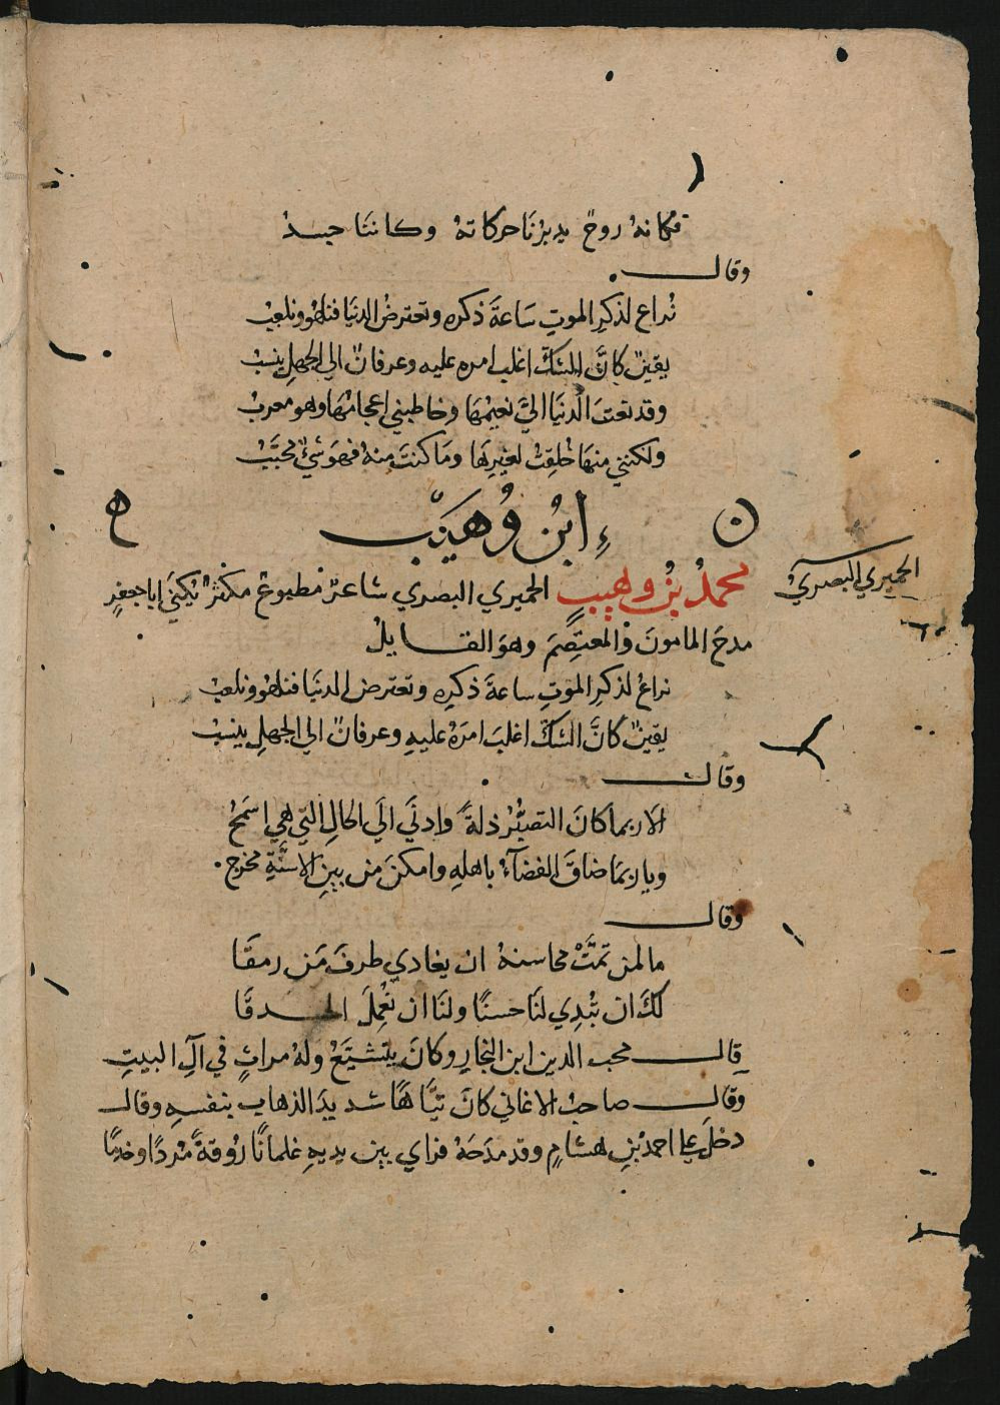 فكانهُ روحٌ يدبرنَا حركاتهُ وكانتا جسدُ
وقال
نُراع لذكرِ الموتِ سَاعةَ ذكره وتعترضُ الدنيَا فنلهُو ونلعبُ
يقينٌ كانَّ الشكَّ اغلب امره عليه وعرفانٌ الي الجهلِ ينسبُ
وقد نعتَ الدنيَا اليَّ نعيمُهَا وخاطبني اعجامُهَا وهو معربُ
ولكنني منهَا خُلقِتُ لغيرِهَا ومَا كنتَ منهُ فهوَ شيءٌ محبَّبُ
ن ابنُ وُهَيبْ ه
محمدُ بنُ وهيب الحميري البصري شاعرٌ مطبوعٌ مكثرٌ يُكنيَ ابا جعفرٍ
الحميري البصريُ
مدحَ المامونَ والمعتصِمَ وهوَ القايلُ
نراعُ لذكرِ الموتِ ساعةَ ذكرِه وتعترض الدنيَا فنلهُو ونلعبُ
يقينٌ كانَّ الشكَّ اغلبَ امرَهُ عليهِ وعرفانٌ الي الجهلِ ينسبُ
وقال
الا ربمَا كانَ التصبُّرُ ذلةً وادنَي الَي الحالِ التي هي اسَمجُ
ويا ربمَا ضاقَ الفضآءُ باهلهِ وامكنَ من بينِ الاسنَّةِ مخرج
وقال
ما لمن تمَّتْ محاسنهُ ان يعادي طرفَ مَن رمقَا
لكَ ان تُبْدِي لنَا حسنًا ولنَا ان نُعْمِلَ الحدقَا
قال محب الدين ابن النجارِ وكانَ يتشيَّعُ ولهُ مراثٍ في آلِ البيتِ
وقال صاحبُ الاغاني كانَ تيَّاهًا شديدَ الذهاب بنفسهِ وقال
دخلَ علي احمدُ بنِ هشامٍ وقد مدَحَهُ فراي بين يديهِ غلمانًا رُوقةً مُردًا وخدمًا